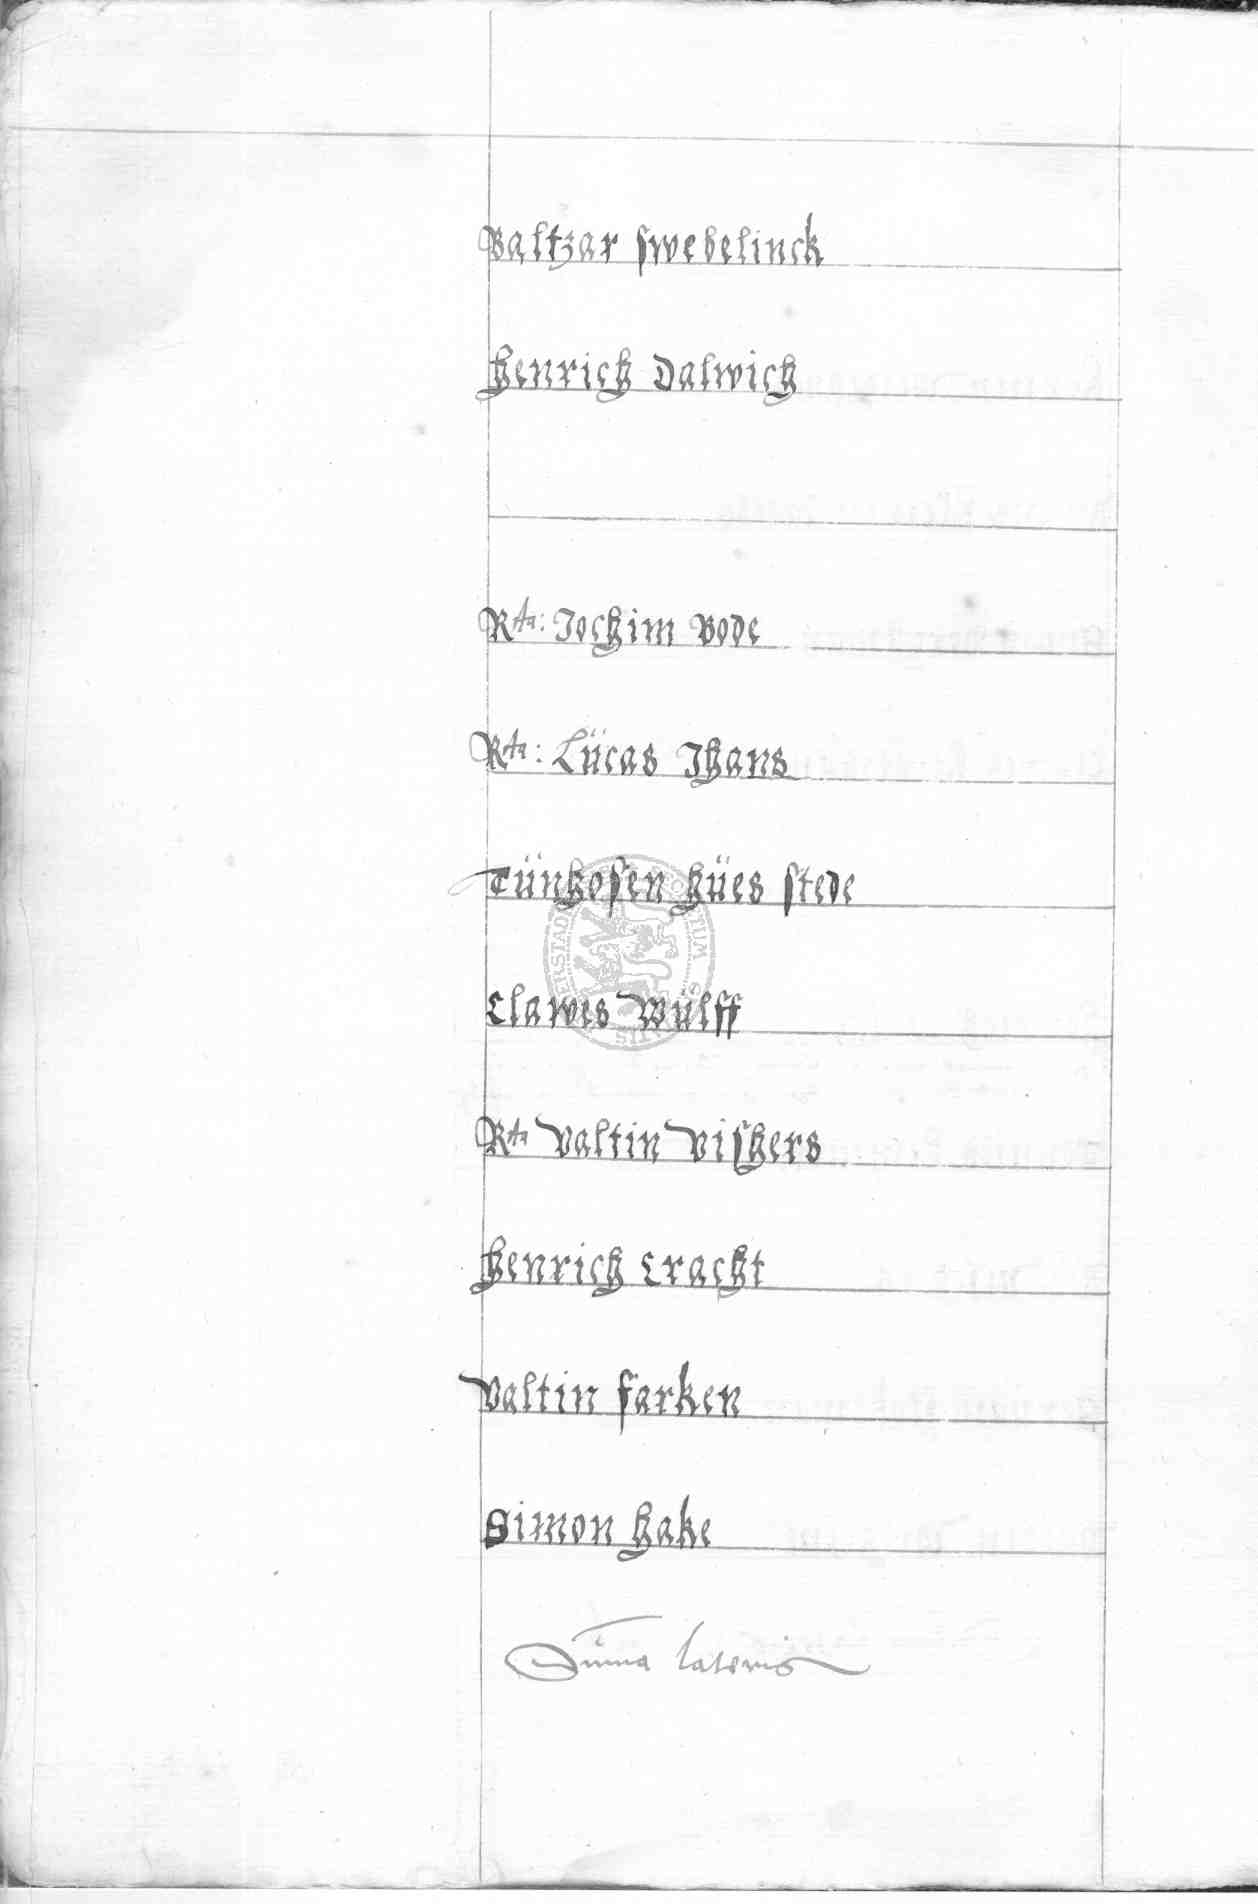 Baltzar swebelinck
Henrich Dalwich
Rta: Jochim Bode
Rta: Lücas Jhans
Tünhosen hües stede
Clawes Wülff
Rta Valtin Vishers
Henrich Cracht
Valtin farken
Simon Hake
Suma lateris